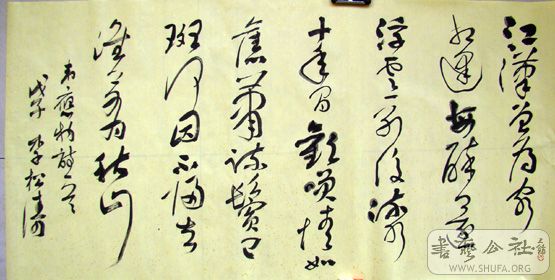 江漢曾为客
相逢每醉还
浮云一别后流水
十年间歡笑情如
舊蕭疏鬓已
斑何因不归去
淮上有秋山
韦应物诗一首
戊子 李松
書艺公社
WWW.SHUFA.ORG